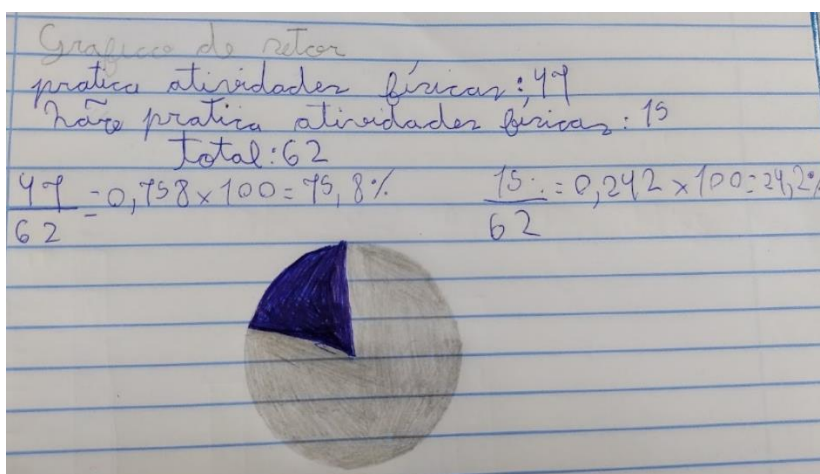 Grafico de setor
pratica atividades físicas: 47
não pratica atividades físicas: 15
total: 62
47/62 = 0,758 x 100 = 75,8% 15/62 = 0,242 x 100 = 24,2%